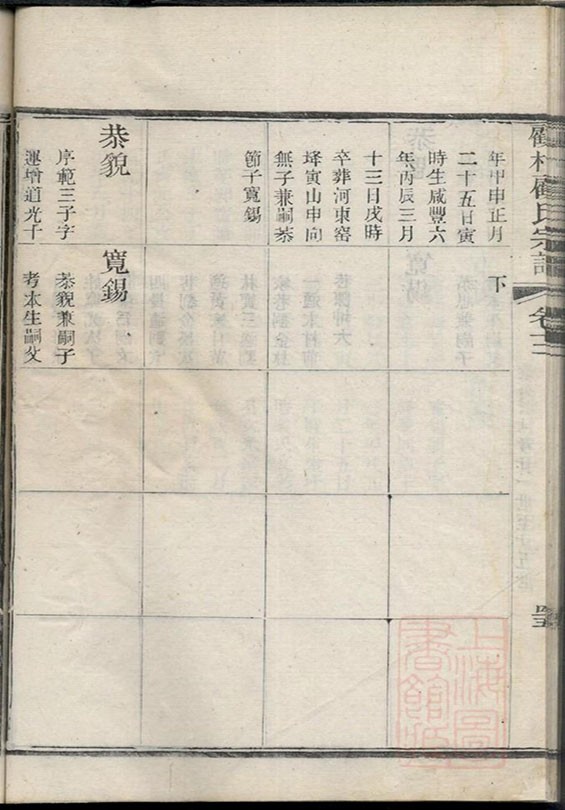 卷三
年甲申正月
二十五日寅
時生咸豐六
年丙辰三月
十三日戌時
卒葬河東窑
寅山申向
無子兼嗣恭
節子寬錫
恭貌
序範三子字
運增道光十
下
寬錫
恭貌兼嗣子
考本生嗣父
上海圖
書館藏